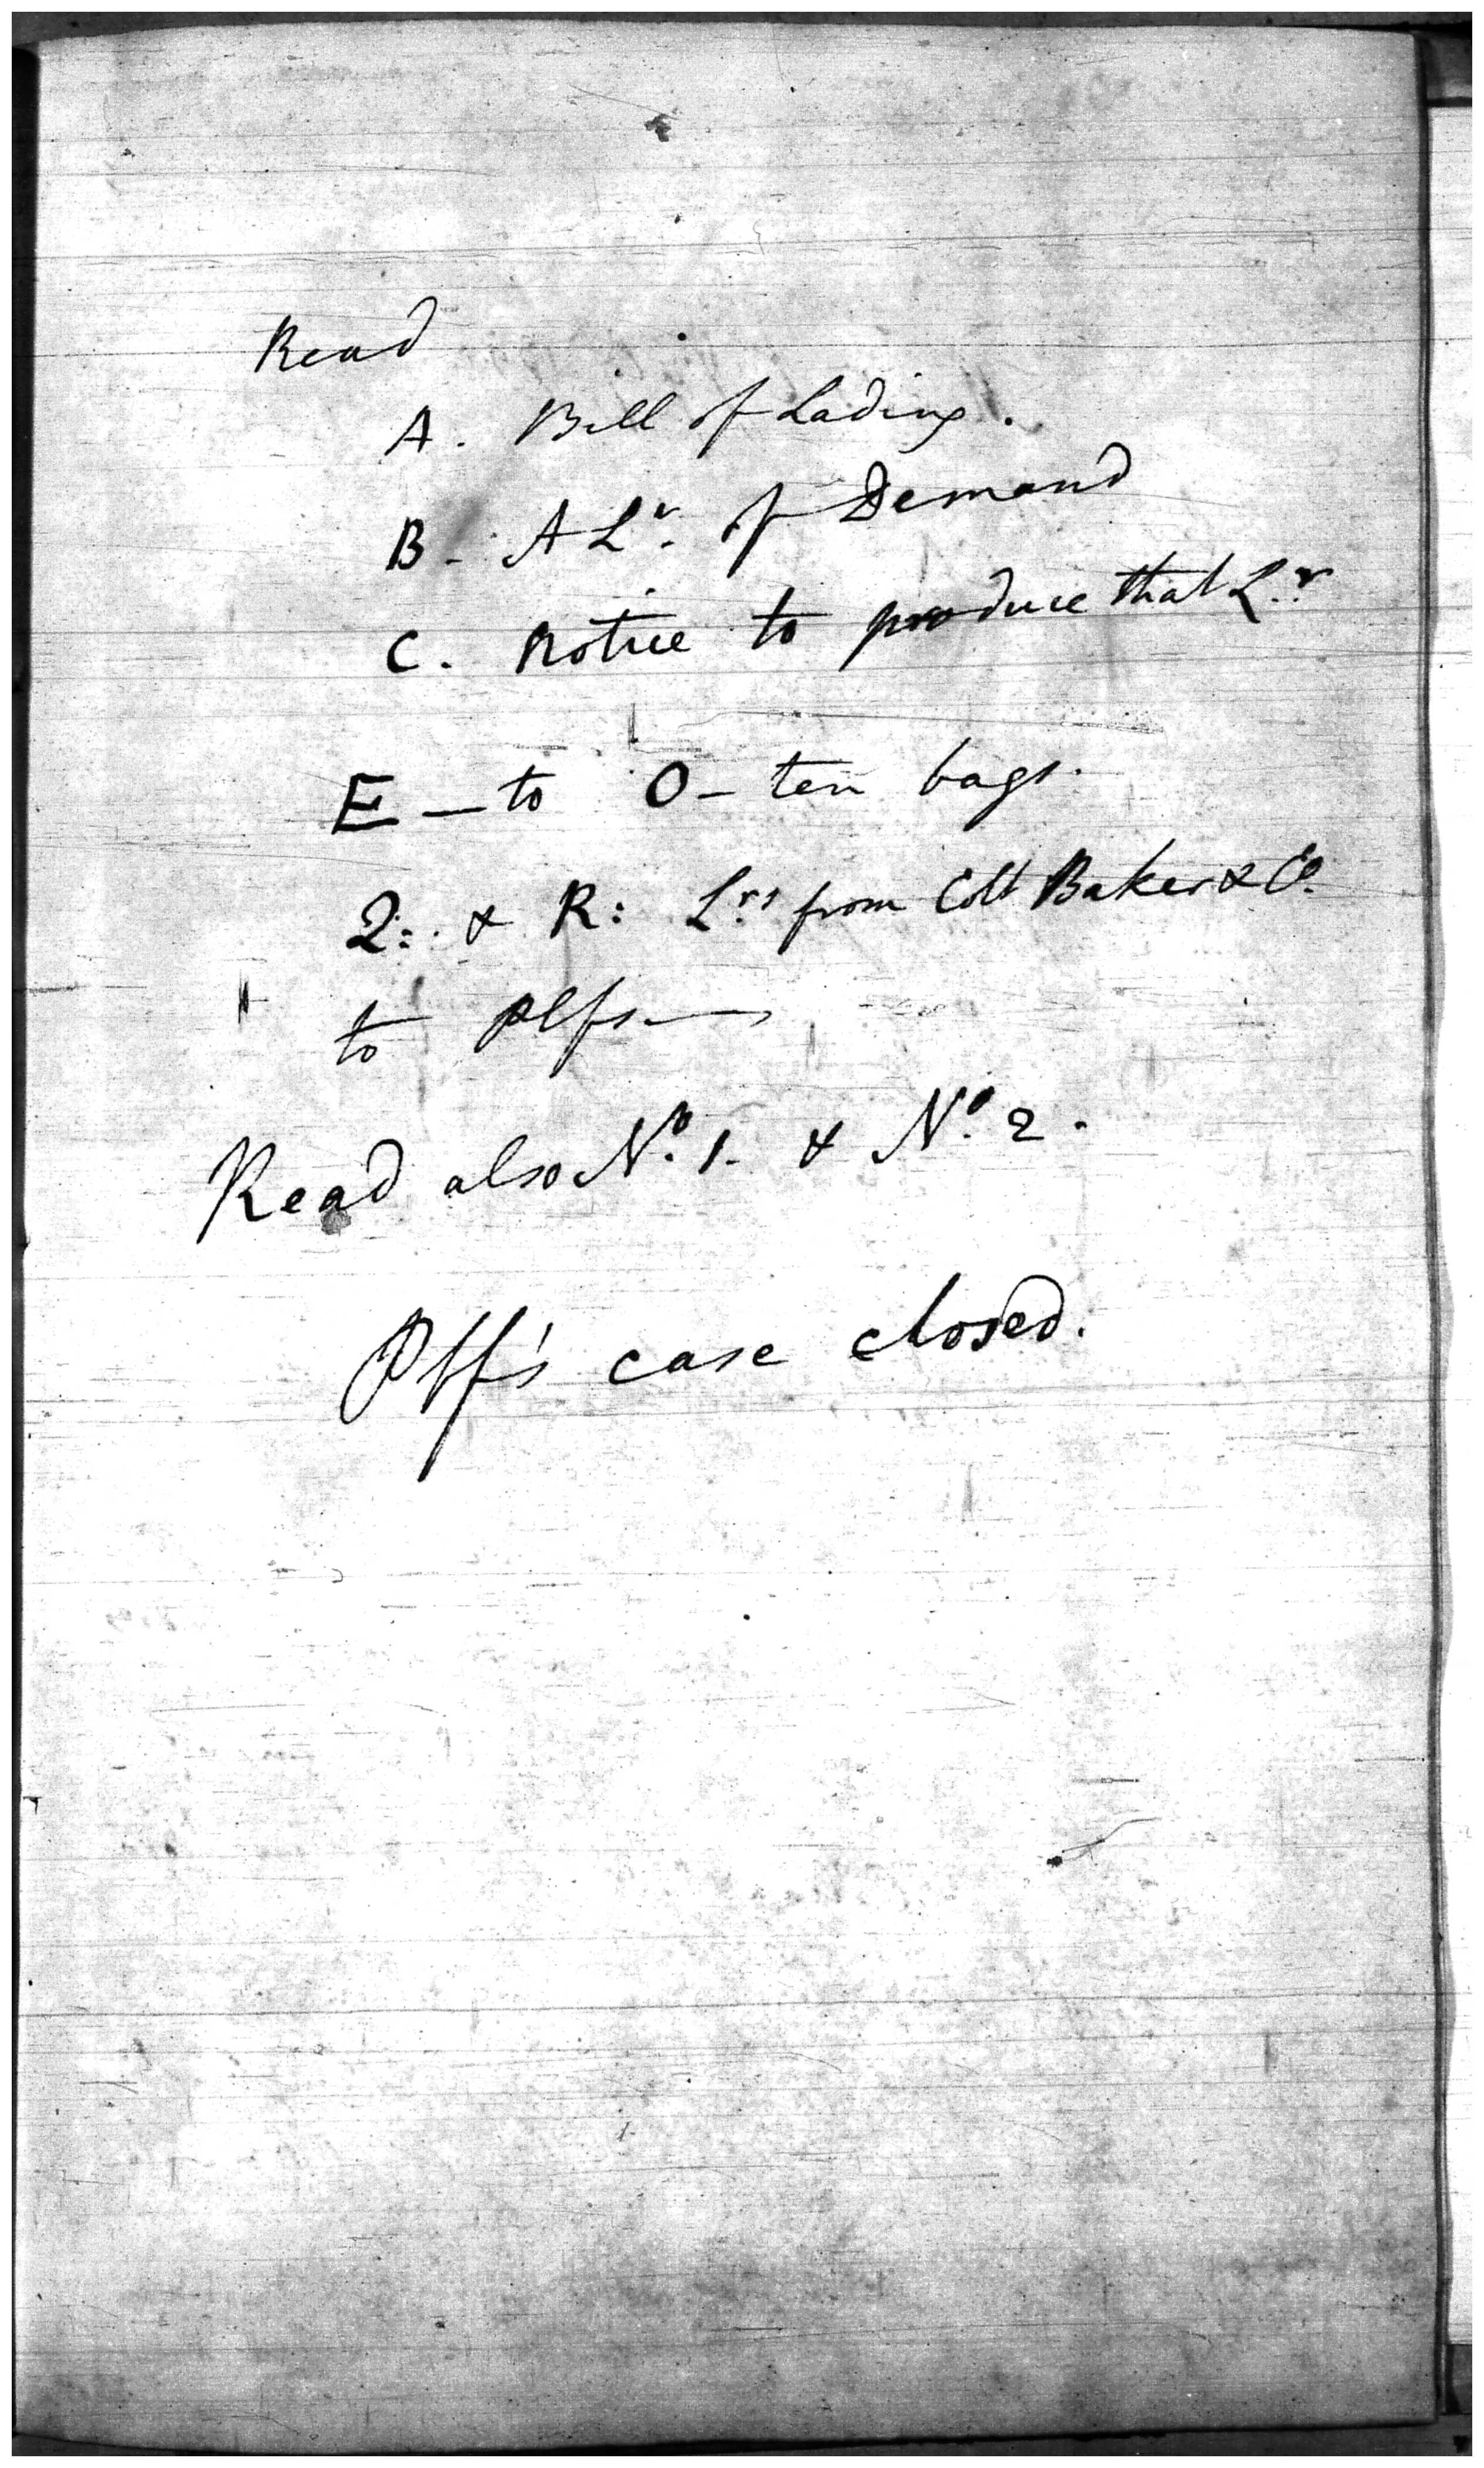 Read
A. Bill of Lading.
B. A Lr. of Demand
C. Notice to produce that Lr.
E — to O — ten bags.
Q: & R: Lrs. from Colt Baker & Co.
to Plfs —
Read also No. 1. & No. 2.
Plff's case closed.